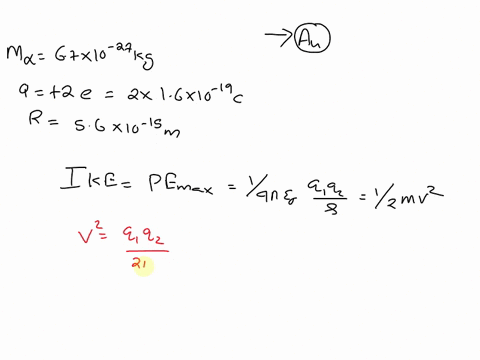 → Au
Mα = 67×10⁻²⁷ kg
q = +2e = 2×1.6×10⁻¹⁹ c
R = 5.6×10⁻¹⁵ m
IKE = PEmax = 1/4πε q₁q₂/r = 1/2 mv²
v² = q₁q₂/2π